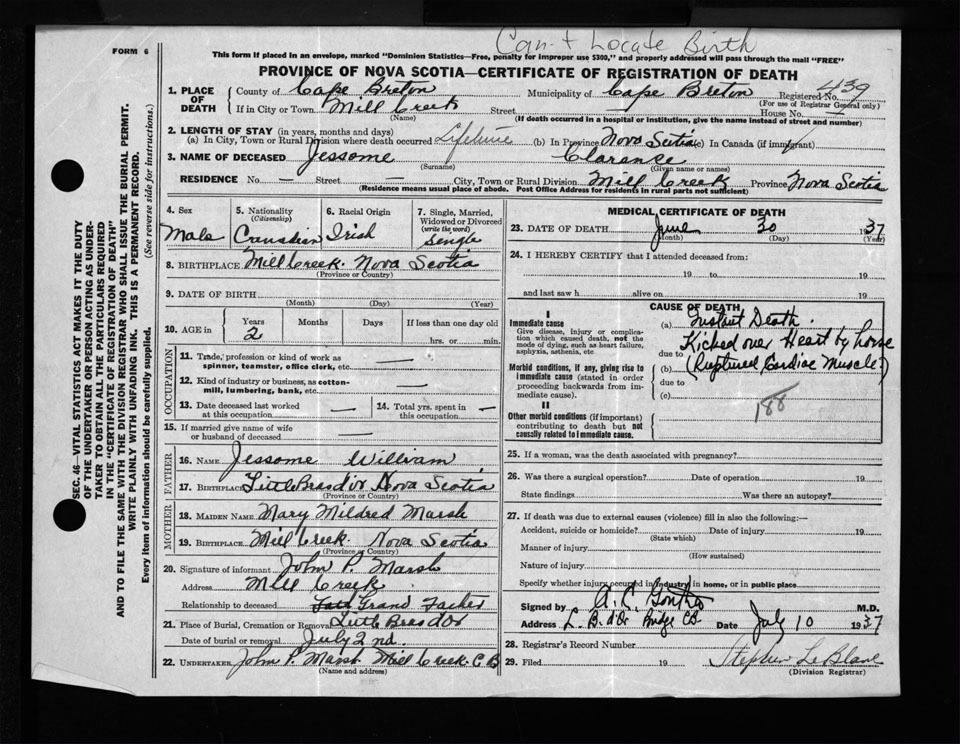 Can't Locate Birth
FORM 6
This form if placed in an envelope, marked "Dominion Statistics—Free, penalty for improper use $300," and properly addressed will pass through the mail "FREE"
PROVINCE OF NOVA SCOTIA—CERTIFICATE OF REGISTRATION OF DEATH
1. PLACE OF DEATH
County of Cape Breton Municipality of Cape Breton Registered No. 439
(For use of Registrar General only)
If in City or Town Mill Creek Street House No.
(Name) (If death occurred in a hospital or institution, give the name instead of street and number)
2. LENGTH OF STAY (in years, months and days)
(a) In City, Town or Rural Division where death occurred Lifetime (b) In Province Nova Scotia (c) In Canada (if immigrant)
3. NAME OF DECEASED Jessome Clarance
(Surname) (Given name or names)
RESIDENCE No. — Street — City, Town or Rural Division Mill Creek Province Nova Scotia
(Residence means usual place of abode. Post Office Address for residents in rural parts not sufficient)
4. Sex Male
5. Nationality (Citizenship) Canadian
6. Racial Origin Irish
7. Single, Married, Widowed or Divorced (write the word) Single
8. BIRTHPLACE Mill Creek. Nova Scotia
(Province or Country)
9. DATE OF BIRTH
(Month) (Day) (Year)
10. AGE in Years 2 Months Days If less than one day old
hrs. or min.
OCCUPATION
11. Trade, profession or kind of work as spinner, teamster, office clerk, etc. —
12. Kind of industry or business, as cotton-mill, lumbering, bank, etc. —
13. Date deceased last worked at this occupation —
14. Total yrs. spent in this occupation —
15. If married give name of wife or husband of deceased —
FATHER
16. NAME Jessome William
17. BIRTHPLACE Little Bras dor Nova Scotia
(Province or Country)
MOTHER
18. MAIDEN NAME Mary Mildred Marsh
19. BIRTHPLACE Mill Creek Nova Scotia
(Province or Country)
20. Signature of informant John P. Marsh
Address Mill Creek
Relationship to deceased Grand Father
21. Place of Burial, Cremation or Removal Little Bras dor
Date of burial or removal July 2nd.
22. UNDERTAKER John P. Marsh Mill Creek. C B
(Name and address)
MEDICAL CERTIFICATE OF DEATH
23. DATE OF DEATH June 30 1937
(Month) (Day) (Year)
24. I HEREBY CERTIFY that I attended deceased from:
19 to 19
and last saw h alive on 19
CAUSE OF DEATH
I
Immediate cause
Give disease, injury or complication which caused death, not the mode of dying, such as heart failure, asphyxia, asthenia, etc
(a) Instant Death.
Kicked over Heart by horse
due to
Morbid conditions, if any, giving rise to immediate cause (stated in order proceeding backwards from immediate cause).
(b) (Ruptured Cardiac Muscle)
due to
(c)
188
II
Other morbid conditions (if important) contributing to death but not causally related to immediate cause.
25. If a woman, was the death associated with pregnancy?
26. Was there a surgical operation? Date of operation 19
State findings Was there an autopsy?
27. If death was due to external causes (violence) fill in also the following:—
Accident, suicide or homicide? Date of injury 19
(State which)
Manner of injury
(How sustained)
Nature of injury
Specify whether injury occurred in industry, in home, or in public place
Signed by M.D.
Address L. B. d'Or Bridge CB Date July 10 1937
28. Registrar's Record Number
29. Filed 19 Stephen LeBlanc
(Division Registrar)
SEC. 46—VITAL STATISTICS ACT MAKES IT THE DUTY
OF THE UNDERTAKER OR PERSON ACTING AS UNDER-
TAKER TO OBTAIN ALL THE PARTICULARS REQUIRED
IN THE "CERTIFICATE OF REGISTRATION OF DEATH"
AND TO FILE THE SAME WITH THE DIVISION REGISTRAR WHO SHALL ISSUE THE BURIAL PERMIT.
WRITE PLAINLY WITH UNFADING INK. THIS IS A PERMANENT RECORD.
Every item of information should be carefully supplied. (See reverse side for instructions.)